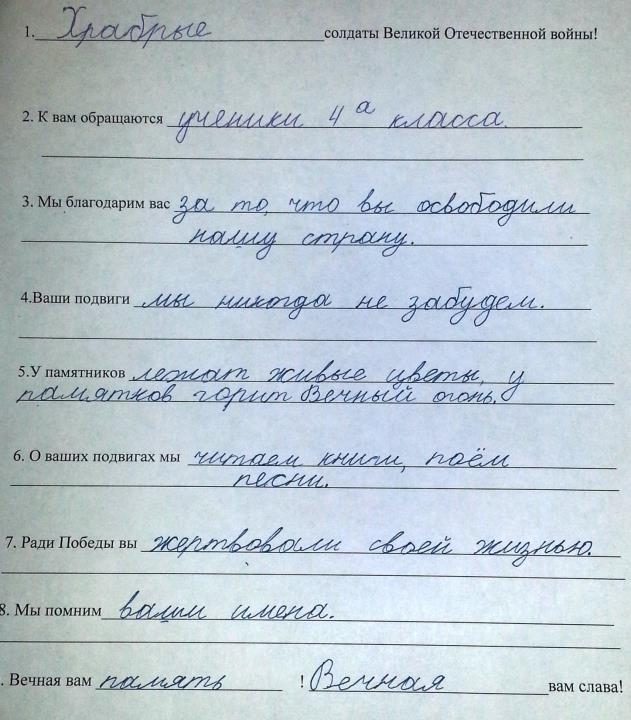 1. Храбрые солдаты Великой Отечественной войны!
2. К вам обращаются ученики 4 а класса.
3. Мы благодарим вас за то, что вы освободили
нашу страну.
4.Ваши подвиги мы никогда не забудем.
5.У памятников лежат живые цветы, у
памятков горит Вечный огонь.
6. О ваших подвигах мы читаем книги, поём
песни.
7. Ради Победы вы жертвовали своей жизнью.
8. Мы помним ваши имена.
. Вечная вам память ! Вечная вам слава!